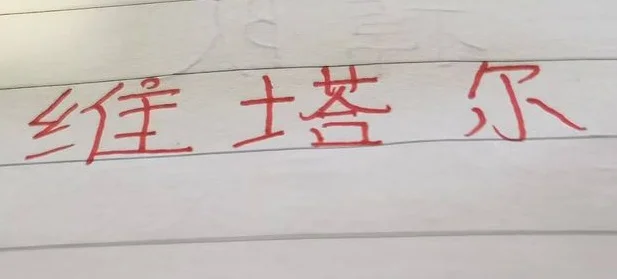 维塔尔